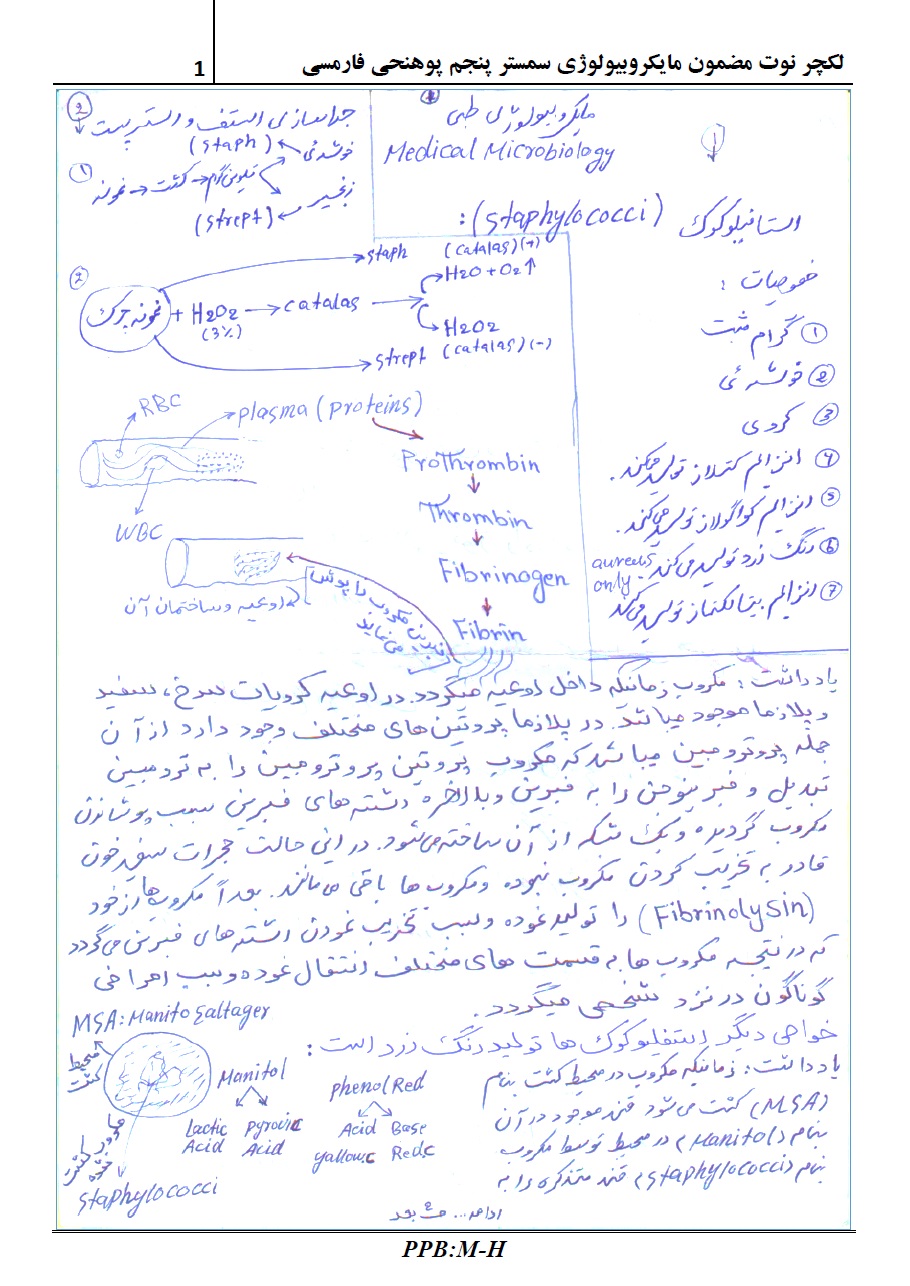 لکچر نوت مضمون مایکروبیولوژی سمستر پنجم پوهنحی فارمسی
1
مایکروبیولوژی طبی
Medical Microbiology
1
استافیلوکوک (Staphylococci):
خصوصیات :
① گرام مثبت
② خوشه ئی
③ کروی
④ انزایم کتلاز تولید میکند.
⑤ انزایم کواگولاز تولید می‌کند.
⑥ رنگ زرد تولید می کند. aureus only
⑦ انزایم بیتالکتماز تولید می کند
② جداسازی استف و استرپت
خوشه ئی (Staph)
① نمونه → کشت → تلوین گرام
زنجیر (Strept)
②
نمونه چرک + H2O2 (3%) → catalas
staph (catalas)(+)
H2O + O2↑
H2O2
strept (catalas)(-)
RBC
plasma (proteins)
WBC
Prothrombin
Thrombin
Fibrinogen
Fibrin
اوعیه و ساختمان آن
فایبرین مکروب را پوش می نماید
یاد داشت : مکروب زمانیکه داخل اوعیه میگردد. در اوعیه کرویات سرخ، سفید
و پلازما موجود میباشد. در پلازما پروتین های مختلف وجود دارد از آن
جمله پروترومبین میباشد که مکروب پروتین پروترومبین را به ترومبین
تبدیل و فبرینوجن را به فبرین و بلاخره رشته های فبرین سبب پوشاندن
مکروب گردیده و یک شبکه از آن ساخته می‌شود. در این حالت حجرات سفید خون
قادر به تخریب کردن مکروب نبوده و مکروب ها باقی می مانند. بعداً مکروب ها از خود
(Fibrinolysin) را تولید نموده و سبب تخریب نمودن رشته های فبرین می گردد
که در نتیجه مکروب ها به قسمت های مختلف انتقال نموده و سبب امراض
گوناگون در نزد شخص میگردد.
خواص دیگر استفیلوکوک ها تولید رنگ زرد است :
یاد داشت : زمانیکه مکروب در محیط کشت بنام
(MSA) کشت می شود قند موجود در آن
بنام (Manitol) در محیط توسط مکروب
بنام (Staphylococci) قند متذکره را به
MSA: Manito Saltager
محیط کشت
مکروب کشت شده
Staphylococci
Manitol
Lactic Acid
Pyrovic Acid
phenol Red
Acid yallow.c
Base Red.c
ادامه... ص بعد
PPB:M-H